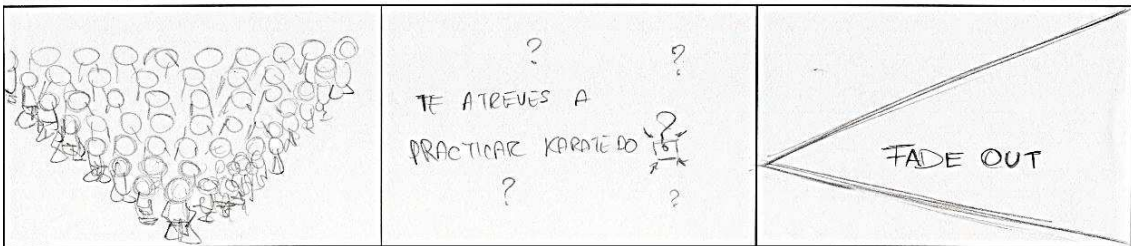 ? ?
TE ATREVES A
PRACTICAR KARATE DO ?
? ?
FADE OUT